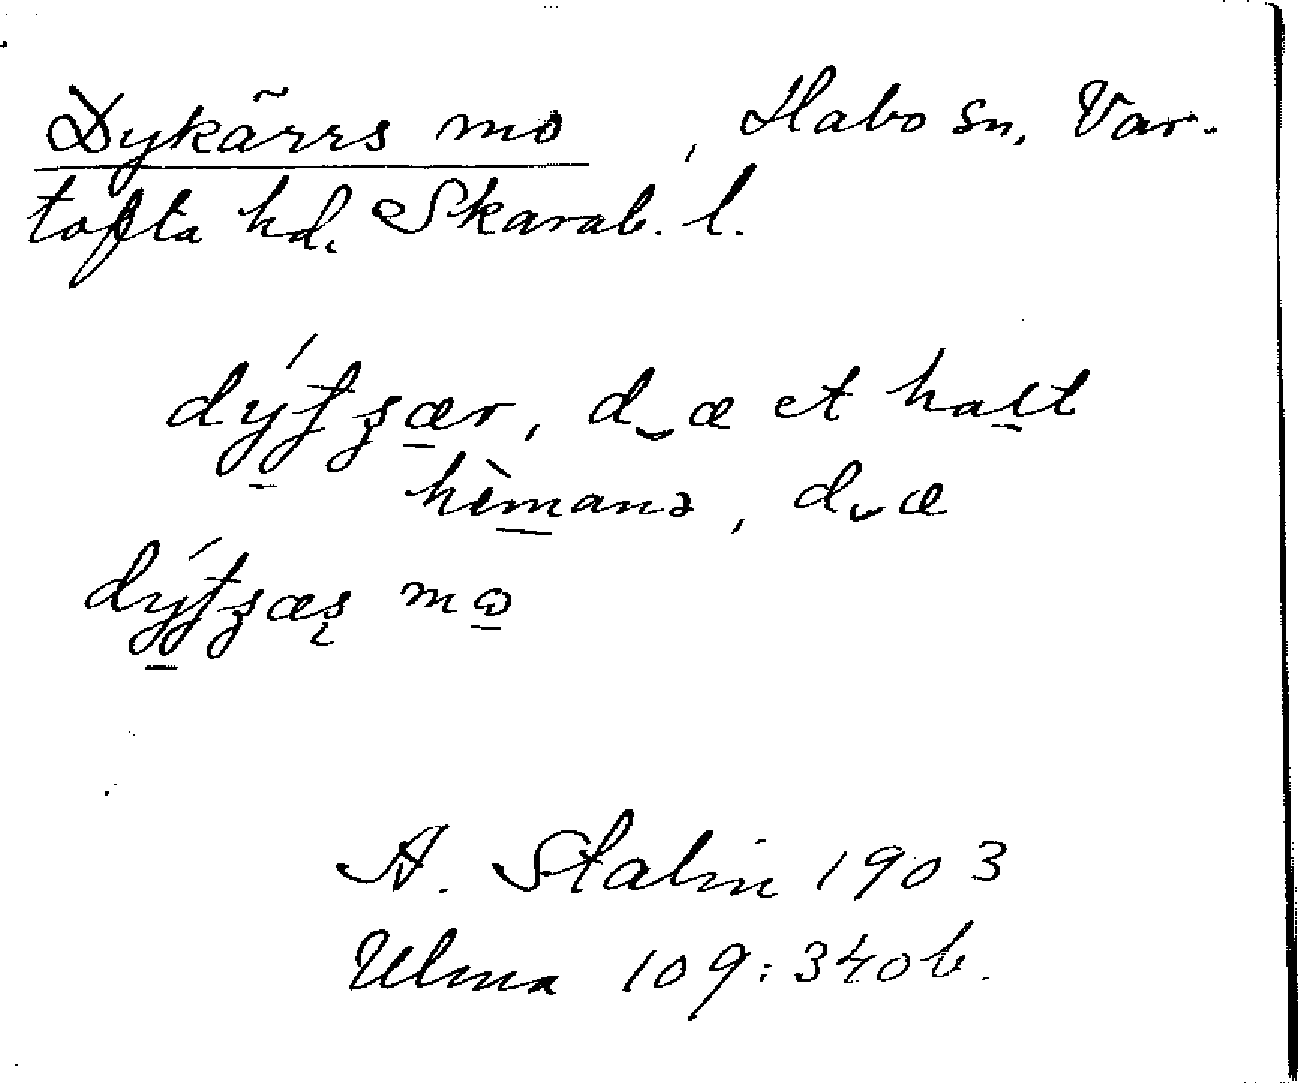 Dykärrs mo, Habo sn, Var-
tofta hd. Skarab. l.
d æ et halt
hèmanə, d æ
A. Stalin 1903
Ulma 109:340b.